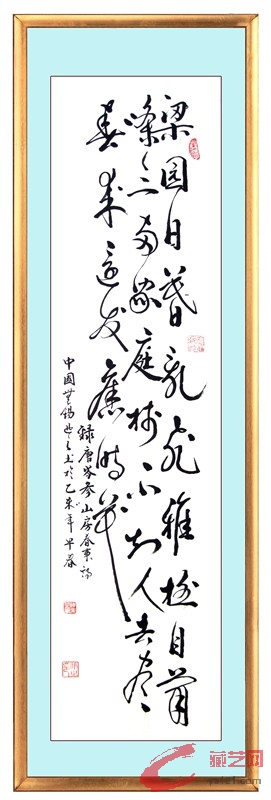 梁园日暮乱飛鴉極目蕭
條三两家庭樹不知人去盡
春来還发舊時花
錄唐岑參山房春事詩
中國無錫書於乙未年早春
藏艺网